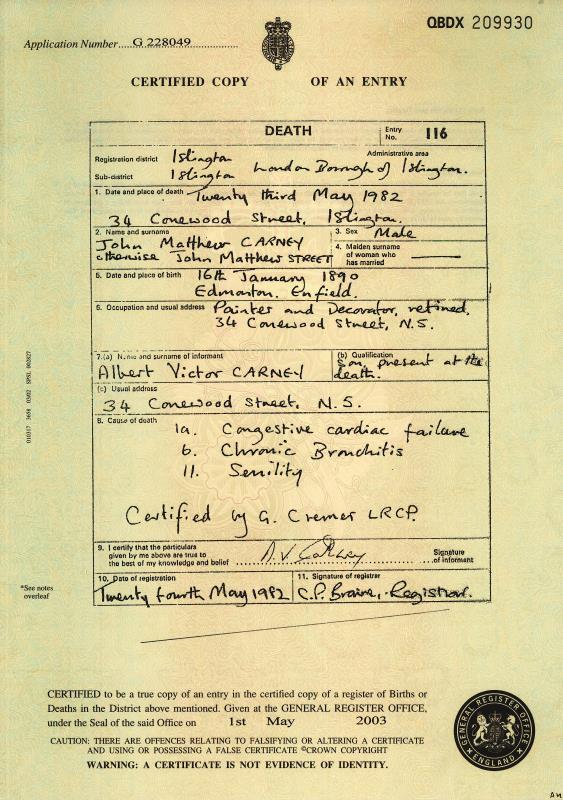 QBDX 209930
Application Number G 228049
CERTIFIED COPY OF AN ENTRY
DEATH Entry No. 116
Registration district Islington Administrative area
Sub-district Islington London Borough of Islington.
1. Date and place of death Twenty third May 1982
34 Conewood Street, Islington.
2. Name and surname 3. Sex Male
John Matthew CARNEY
otherwise John Matthew STREET
4. Maiden surname of woman who has married
5. Date and place of birth 16th January 1890
Edmonton, Enfield.
6. Occupation and usual address Painter and Decorator, retired.
34 Conewood Street, N.5.
7.(a) Name and surname of informant (b) Qualification
Albert Victor CARNEY Son, present at the death.
(c) Usual address
34 Conewood Street, N.5.
8. Cause of death
1a. Congestive cardiac failure
b. Chronic Bronchitis
11. Senility
Certified by G. Cremer LRCP.
9. I certify that the particulars given by me above are true to the best of my knowledge and belief A.V. Carney Signature of informant
10. Date of registration 11. Signature of registrar
Twenty fourth May 1982 C.P. Braine, Registrar.
*See notes overleaf
CERTIFIED to be a true copy of an entry in the certified copy of a register of Births or
Deaths in the District above mentioned. Given at the GENERAL REGISTER OFFICE,
under the Seal of the said Office on 1st May 2003
CAUTION: THERE ARE OFFENCES RELATING TO FALSIFYING OR ALTERING A CERTIFICATE
AND USING OR POSSESSING A FALSE CERTIFICATE ©CROWN COPYRIGHT
WARNING: A CERTIFICATE IS NOT EVIDENCE OF IDENTITY.
GENERAL REGISTER OFFICE
ENGLAND